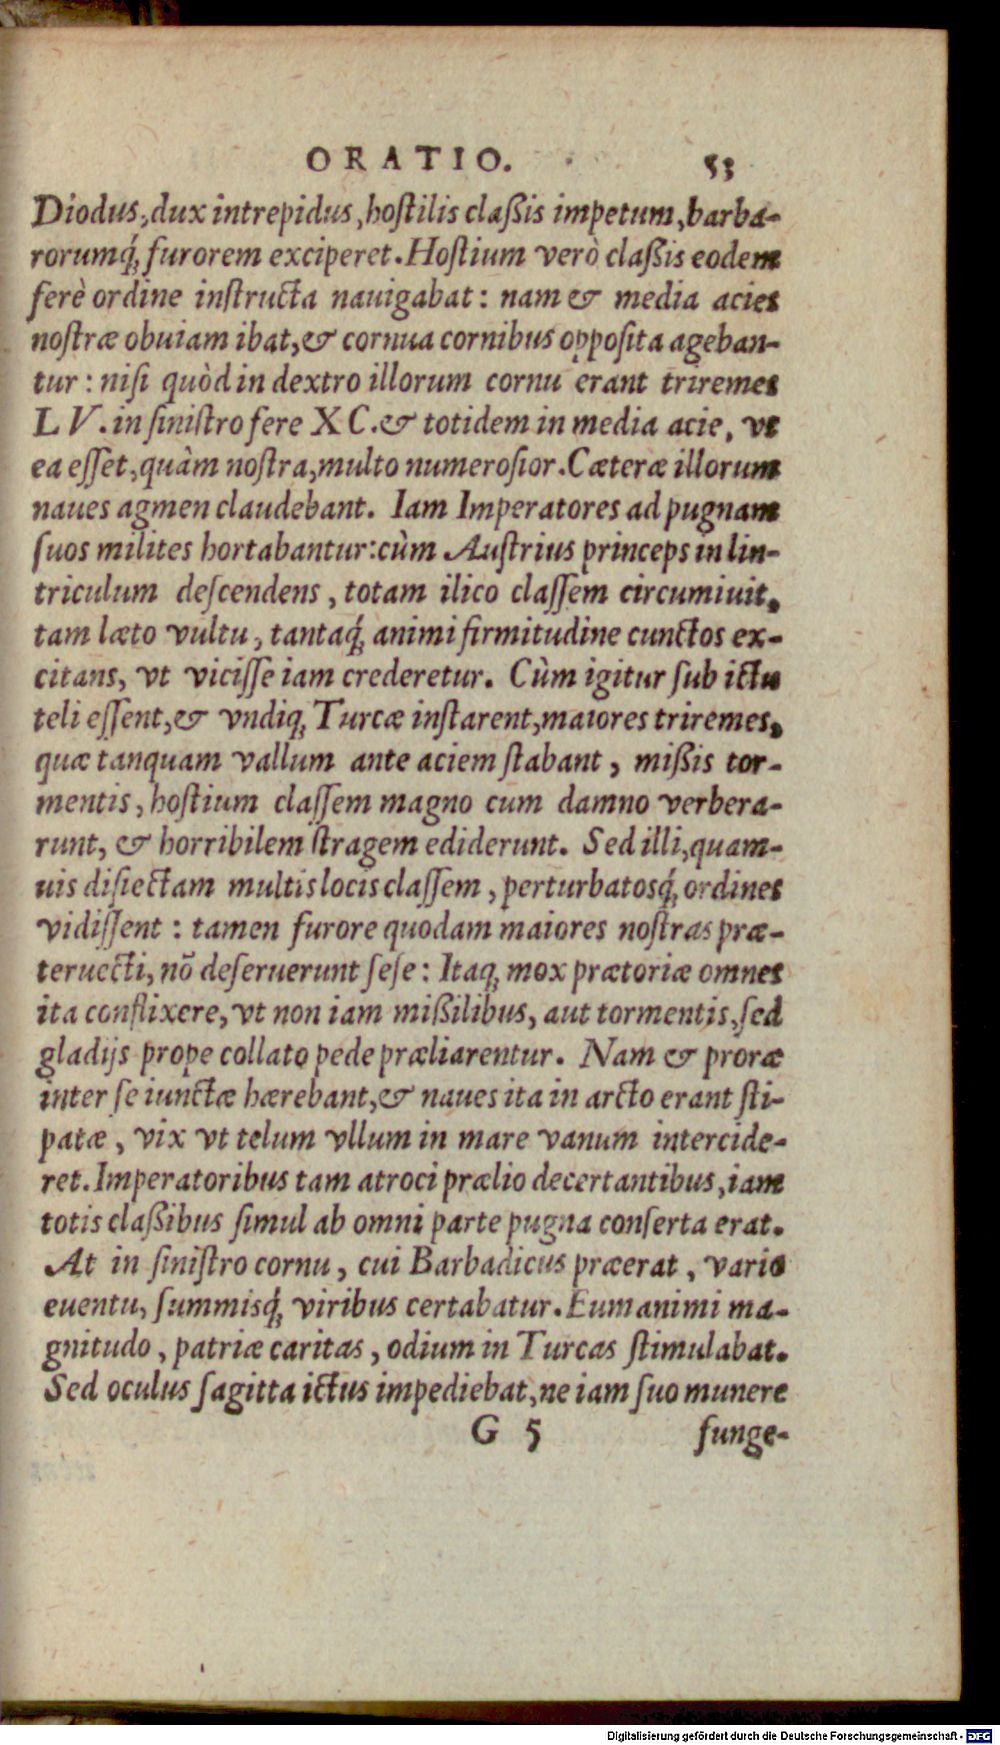 ORATIO. 53
Diodus, dux intrepidus, hoſtilis claßis impetum, barba-
rorumq́; furorem exciperet. Hoſtium verò claßis eodem
ferè ordine inſtructa nauigabat: nam & media acies
noſtræ obuiam ibat, & cornua cornibus oppoſita ageban-
tur: niſi quòd in dextro illorum cornu erant triremes
LV. in ſiniſtro fere XC. & totidem in media acie, vt
ea eſſet, quàm noſtra, multo numeroſior. Cæteræ illorum
naues agmen claudebant. Iam Imperatores ad pugnam
ſuos milites hortabantur: cùm Auſtrius princeps in lin-
triculum deſcendens, totam ilico claſſem circumiuit,
tam læto vultu, tantaq́; animi firmitudine cunctos ex-
citans, vt viciſſe iam crederetur. Cùm igitur ſub ictu
teli eſſent, & vndiq; Turcæ inſtarent, maiores triremes,
quæ tanquam vallum ante aciem ſtabant, mißis tor-
mentis, hoſtium claſſem magno cum damno verbera-
runt, & horribilem ſtragem ediderunt. Sed illi, quam-
uis diſiectam multis locis claſſem, perturbatosq́; ordines
vidiſſent: tamen furore quodam maiores noſtras præ-
teruecti, nō deſeruerunt ſeſe: Itaq; mox prætoriæ omnes
ita conflixere, vt non iam mißilibus, aut tormentis, ſed
gladijs prope collato pede præliarentur. Nam & proræ
inter ſe iunctæ hærebant, & naues ita in arcto erant ſti-
patæ, vix vt telum vllum in mare vanum intercide-
ret. Imperatoribus tam atroci prælio decertantibus, iam
totis claßibus ſimul ab omni parte pugna conſerta erat.
At in ſiniſtro cornu, cui Barbadicus præerat, vario
euentu, ſummisq́; viribus certabatur. Eum animi ma-
gnitudo, patriæ caritas, odium in Turcas ſtimulabat.
Sed oculus ſagitta ictus impediebat, ne iam ſuo munere
G 5 funge-
Digitalisierung gefördert durch die Deutsche Forschungsgemeinschaft - DFG